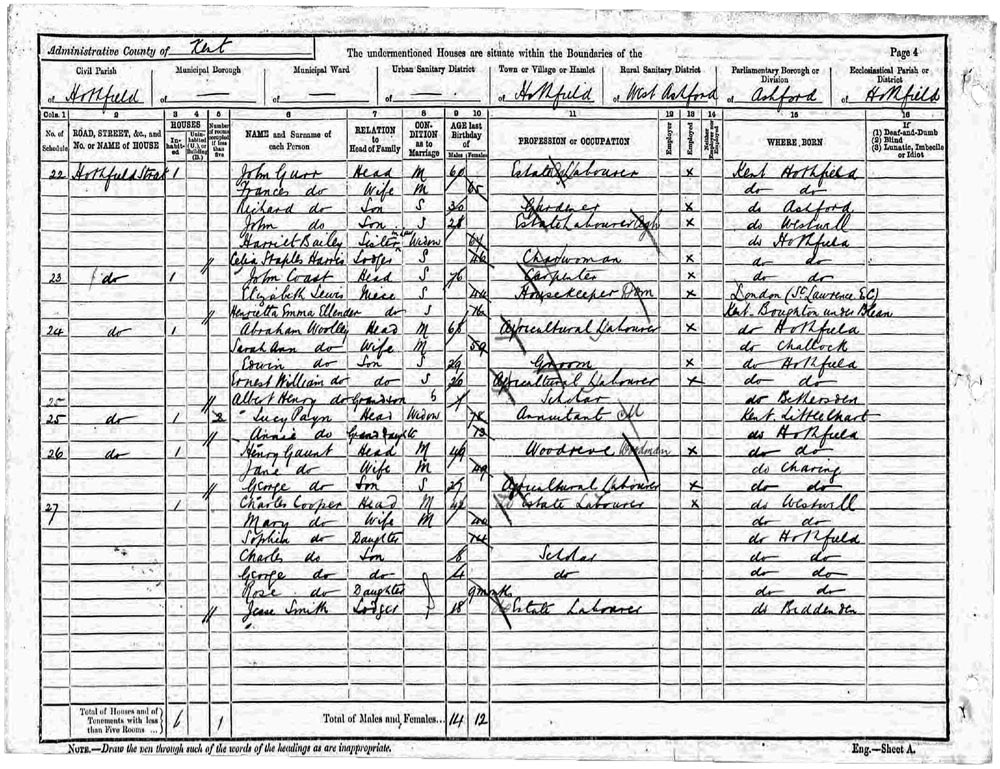 Administrative County of Kent The undermentioned Houses are situate within the Boundaries of the Page 4
Civil Parish Municipal Borough Municipal Ward Urban Sanitary District Town or Village or Hamlet Rural Sanitary District Parliamentary Borough or Division Ecclesiastical Parish or District
of Hothfield of — of — of — of Hothfield of West Ashford of Ashford of Hothfield
Cols. 1 2 3 4 5 6 7 8 9 10 11 12 13 14 15 16
No. of Schedule ROAD, STREET, &c., and No. or NAME of HOUSE HOUSES Inhabited Uninhabited (U.), or Building (B.) Number of rooms occupied if less than five NAME and Surname of each Person RELATION to Head of Family CONDITION as to Marriage AGE last Birthday of Males Females PROFESSION or OCCUPATION Employer Employed Neither Employer nor Employed WHERE BORN If (1) Deaf-and-Dumb (2) Blind (3) Lunatic, Imbecile or Idiot
22 Hothfield Street 1 John Gurr Head M 60 Estate Labourer x Kent Hothfield
Frances do Wife M 65 do do
Richard do Son S 36 Gardener x do Ashford
John do Son S 28 Estate Labourer x do Westwell
Harriet Bailey Sister in Law Widow 64 do Hothfield
Celia Staples Harris Lodger S 46 Charwoman x do do
23 do 1 John Coast Head S 76 Carpenter x do do
Elizabeth Lewis Niece S 44 Housekeeper Dom x London (St Lawrence E.C)
Henrietta Emma Ellender do S 16 Kent. Boughton under Blean
24 do 1 Abraham Woolley Head M 68 Agricultural Labourer x do Hothfield
Sarah Ann do Wife M 59 do Challock
Edwin do Son S 29 Groom x do Hothfield
Ernest William do do S 26 Agricultural Labourer x do do
25 Albert Henry do Grandson Scholar do Bethersden
25 do 1 2 Lucy Payn Head Widow 78 Annuitant Kent. Little Chart
Annie do Grand Daughter 13 do Hothfield
26 do 1 Henry Gaunt Head M 49 Woodreve Woodman x do do
Jane do Wife M 49 do Charing
George do Son S 27 Agricultural Labourer x do do
27 1 Charles Cooper Head M 42 Estate Labourer x do Westwell
Mary do Wife M 44 do do
Sophia do Daughter 14 do Hothfield
Charles do Son 8 Scholar do do
George do do 4 do do do
Rose do Daughter 9 months do do
Jesse Smith Lodger 18 Estate Labourer do Biddenden
Total of Houses and of Tenements with less than Five Rooms ... 6 1 Total of Males and Females... 14 12
NOTE.—Draw the pen through such of the words of the headings as are inappropriate. Eng.—Sheet A.